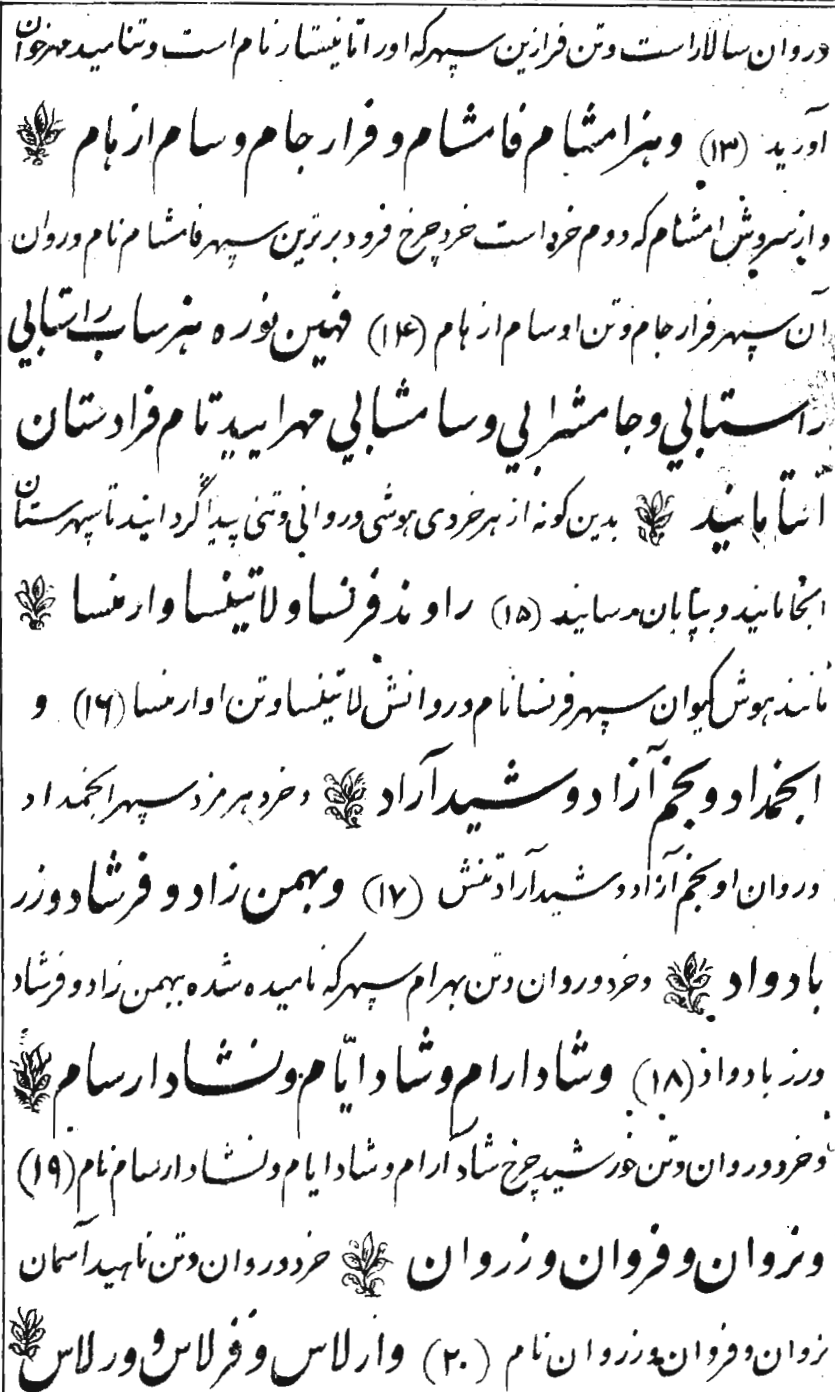 دروان سالار است و تن فرازین سپهر که او را تانیستار نام است و تناسید مهر خوان
آورید (۱۳) و هنر امشام فامشام و فرارجام و سام از هام
و از سروش امشام که دوم خرد است خرد چرخ فرود برترین سپهر فامشام نام و روان
آن سپهر فرارجام و تن او سام از هام (۱۴) فهین نوره هنر ساب راستابی
راستابی و جامشرابی و سامشابی مهرایید تا م فرادستان
انتامانید بدین کونه از هر خردی هوشی و روانی و تنی پیدا گردانید تا سپهرستان
انجامانید و بپایان رسانید (۱۵) راوند فرنسا و لاتینسا وارمنسا
مانند هوش کیوان سپهر فرنسا نام در وانش لاتینسا و تن او ارمنسا (۱۶) و
انجمداد و نجم آزاد و شید آراد و خرد هرمزد سپهر انجمداد
و روان او نجم آزاد و شید آراد تنش (۱۷) و بهمن زاد و فرشاد و زر
بادواد و خرد و روان و تن بهرام سپهر که نامیده شده ببهمن زاد و فرشاد
ورز بادواد (۱۸) و شاد ارام و شاد ایّام و نشاد ارسام
و خرد و روان و تن خورشید چرخ شاد آرام و شاد ایام و نشاد ارسام نام (۱۹)
و نروان و فروان و زروان خرد و روان و تن ناهید آسمان
نروان و فروان و زروان نام (۲۰) وارلاس و فرلاس و ورلاس